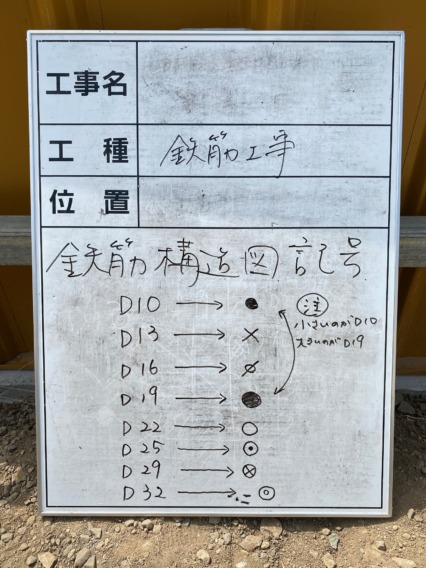 工事名
工種 鉄筋工事
位置
鉄筋構造図記号
D10 → ●
D13 → ×
D16 → ⌀
D19 → ●
D22 → ○
D25 → ⊙
D29 → ⊗
D32 → ◎
注
小さいのがD10
大きいのがD19